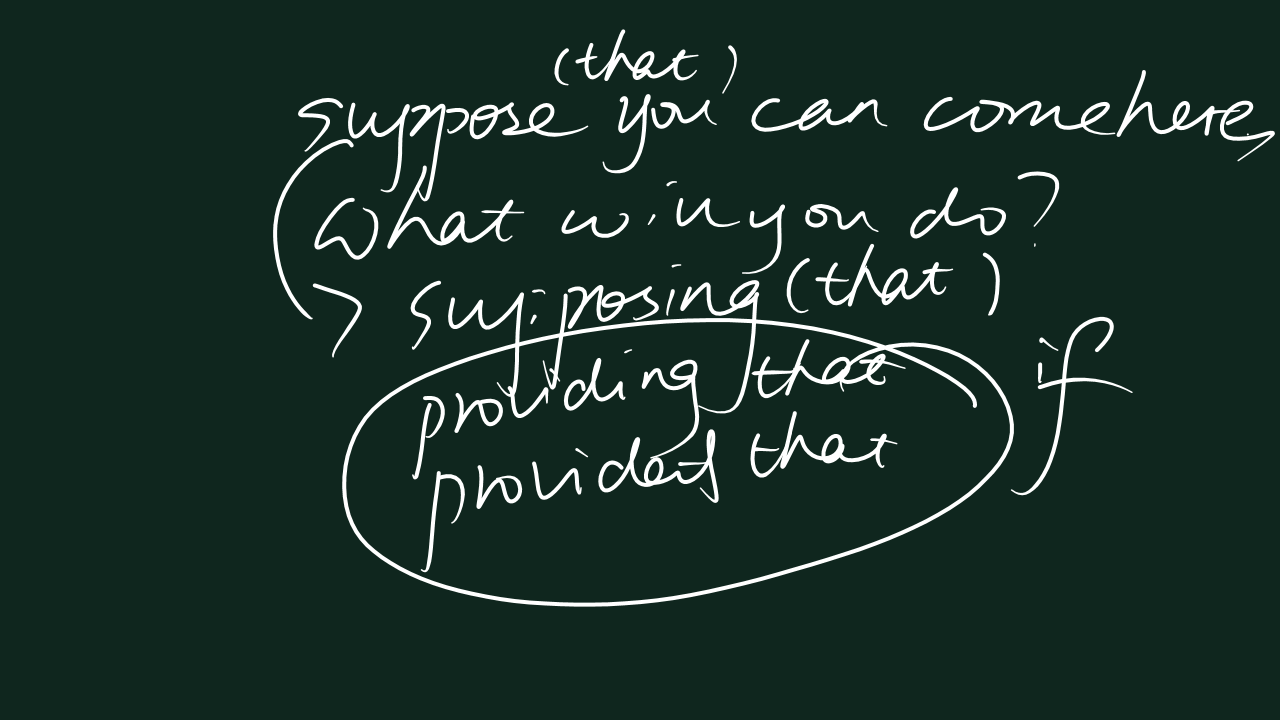 (that)
suppose you can come here,
What will you do?
supposing (that)
providing that
if
provided that